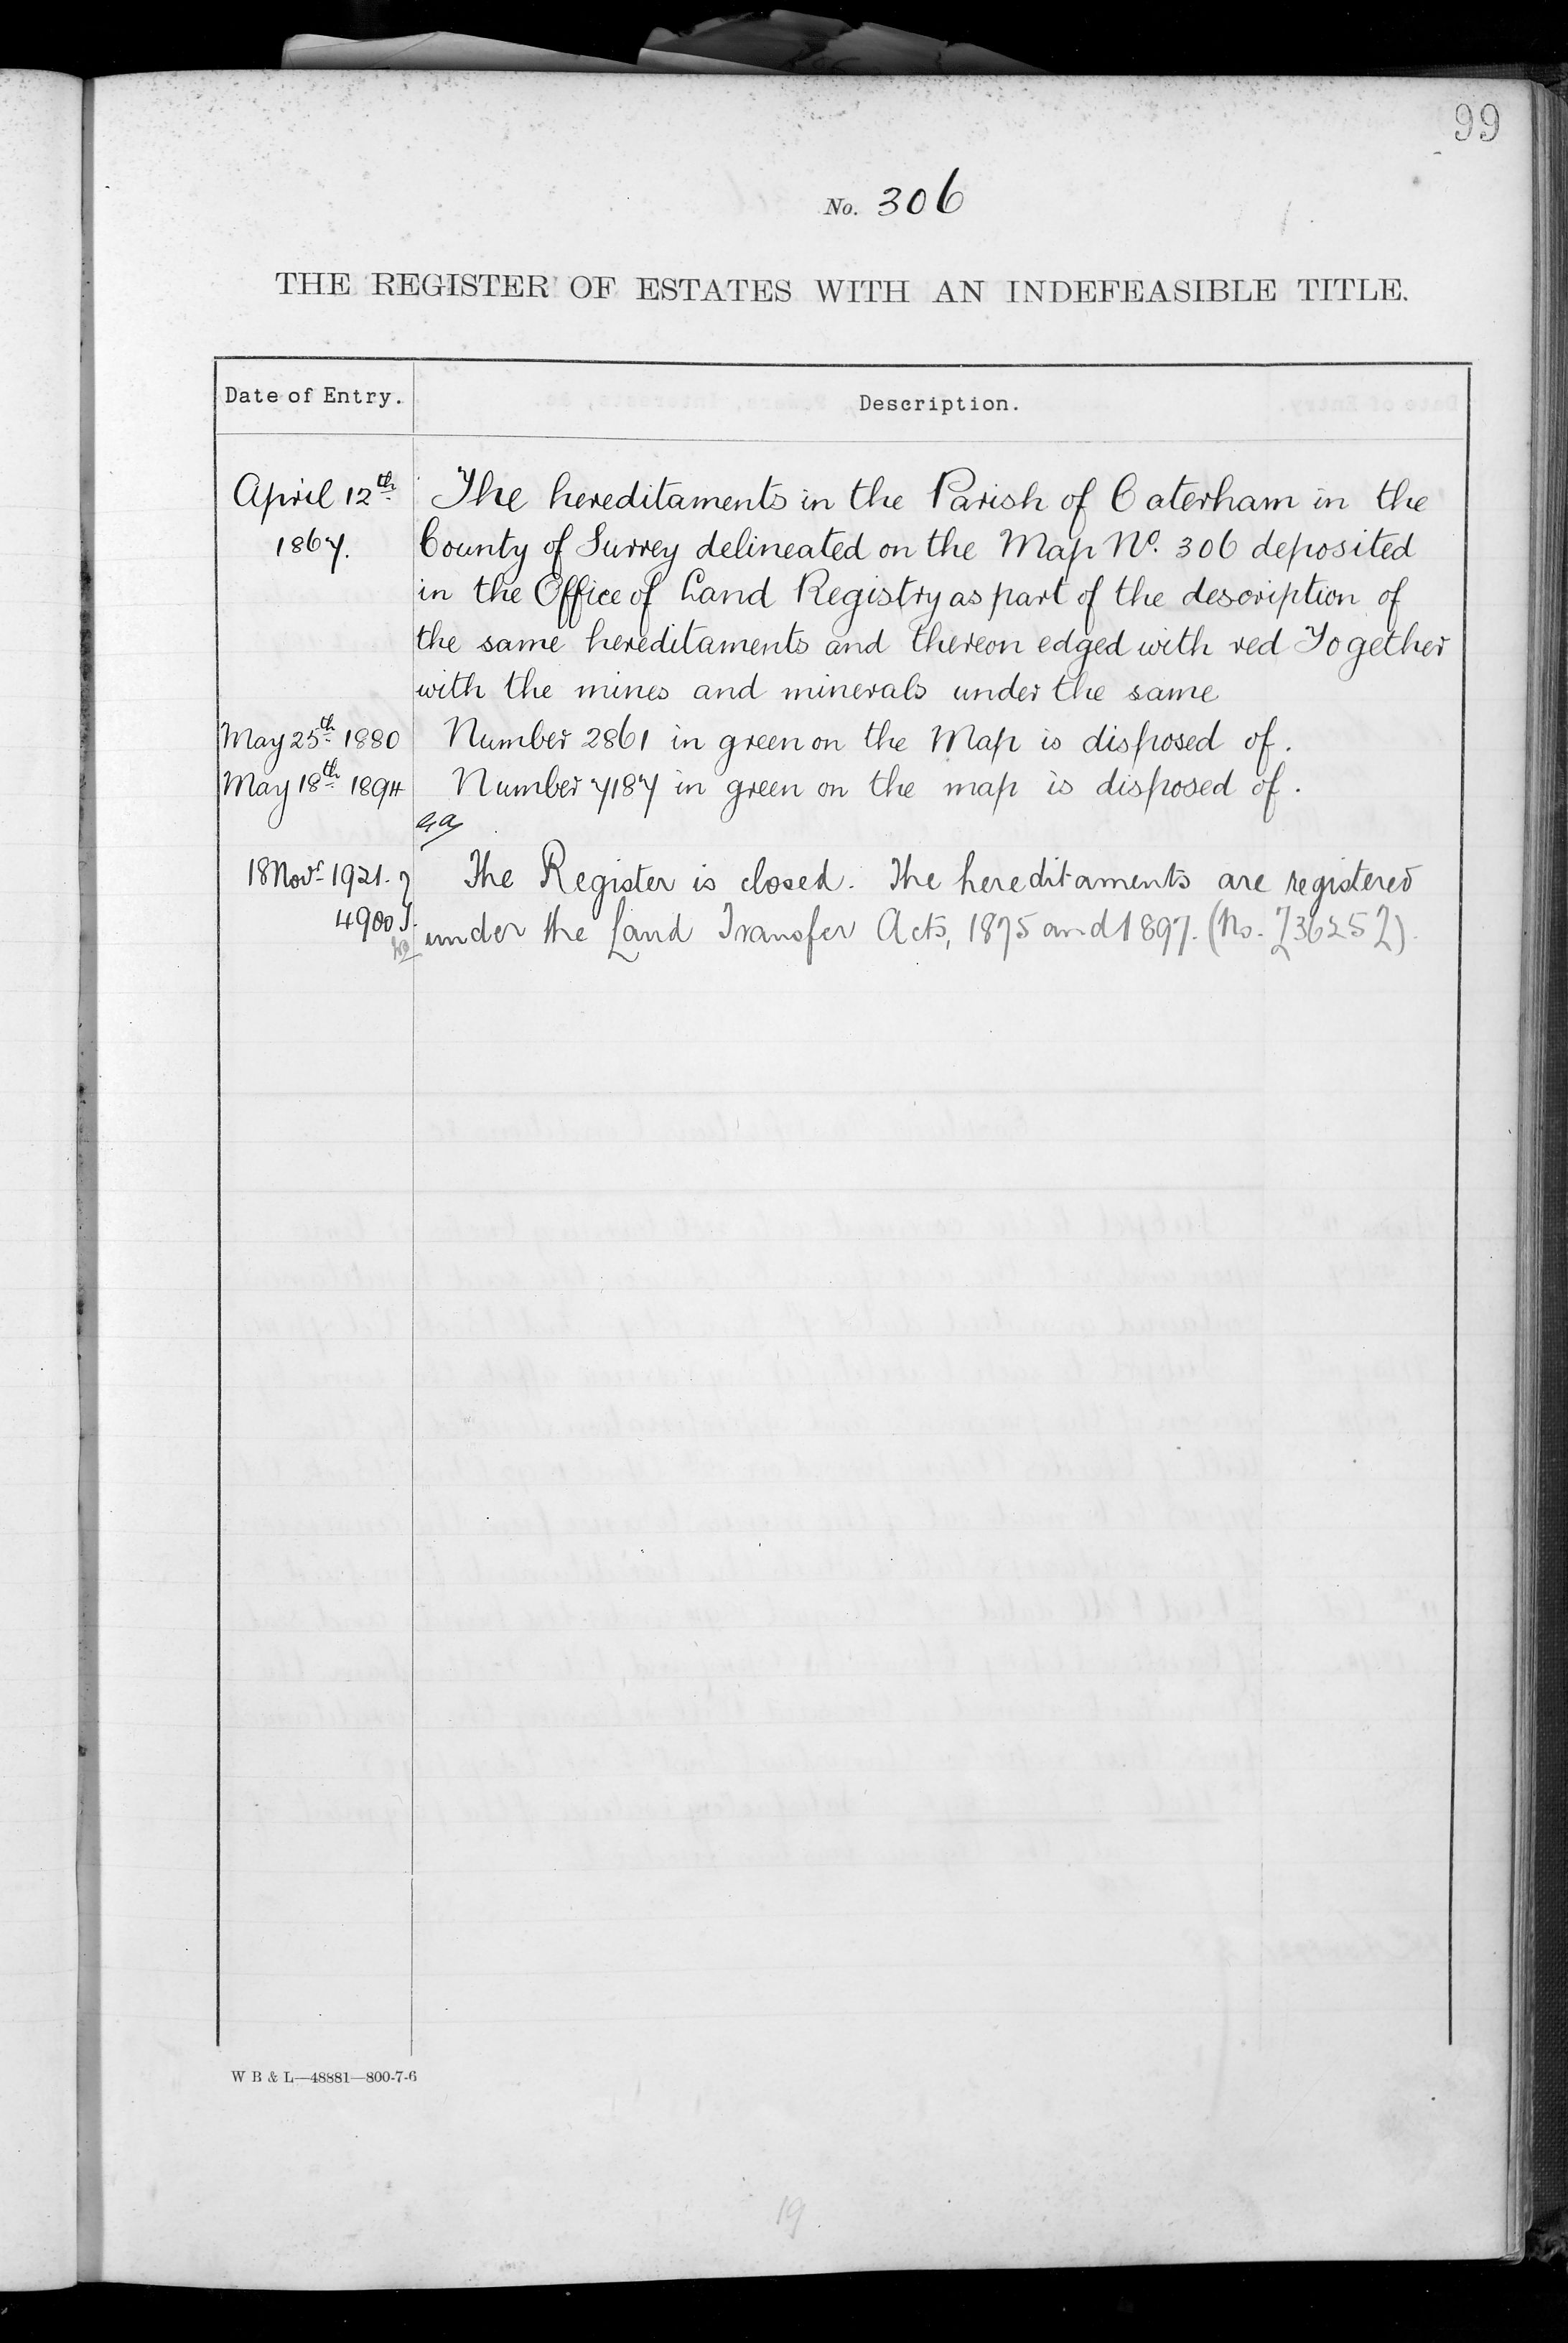 99
No. 306
THE REGISTER OF ESTATES WITH AN INDEFEASIBLE TITLE.
Date of Entry. Description.
April 12th The hereditaments in the Parish of Caterham in the
1867. County of Surrey delineated on the Map No. 306 deposited
in the Office of Land Registry as part of the description of
the same hereditaments and thereon edged with red Together
with the mines and minerals under the same
May 25th 1880 Number 2861 in green on the Map is disposed of.
May 18th 1894 Number 7187 in green on the map is disposed of.
18 Novr 1921. The Register is closed. The hereditaments are registered
4900 under the Land Transfer Acts, 1875 and 1897. (No. 73625
W B & L—48881—800-7-6
19